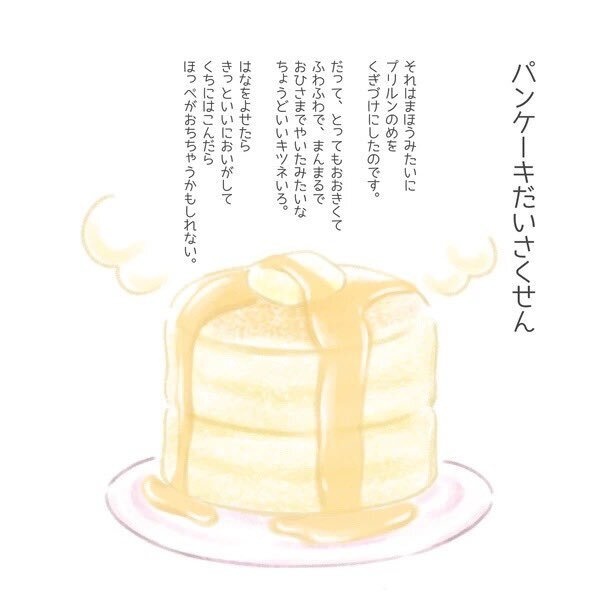 パンケーキだいさくせん
それはまほうみたいに
プリルンのめを
くぎづけにしたのです。
だって、とってもおおきくて
ふわふわで、まんまるで
おひさまでやいたみたいな
ちょうどいいキツネいろ。
はなをよせたら
きっといいにおいがして
くちにはこんだら
ほっぺがおちちゃうかもしれない。